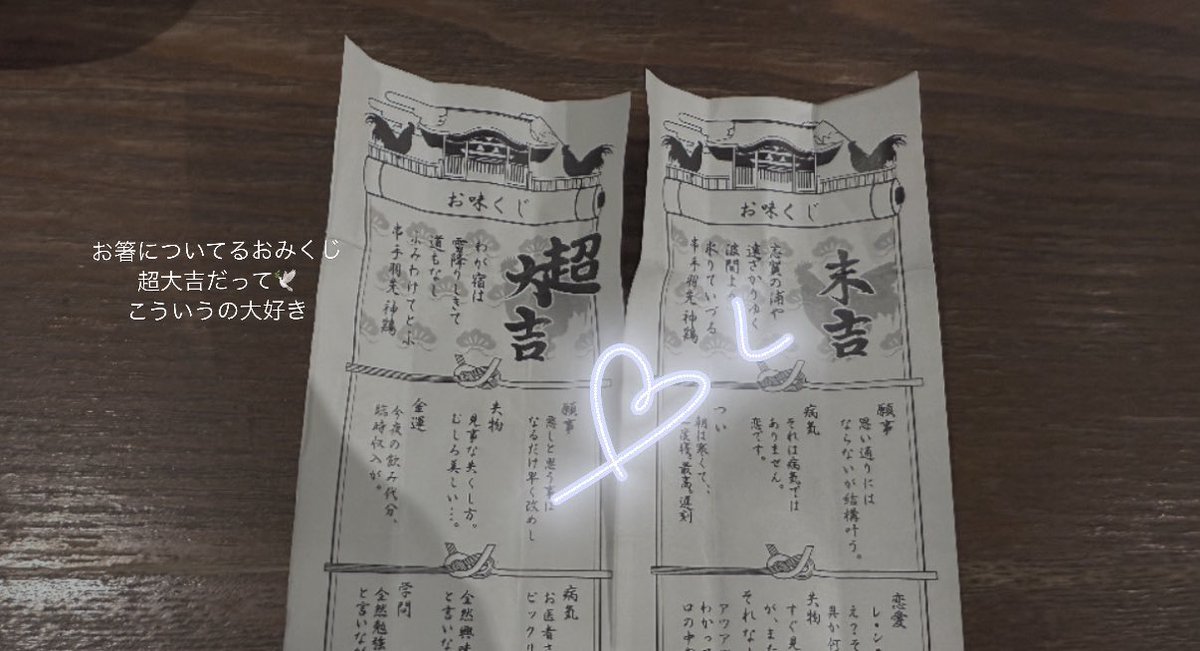 お箸についてるおみくじ
超大吉だって🕊️
こういうの大好き
お味くじ
超大吉
わが宿は
雪降りしきて
道もなし
ふみわけてとふ
串手羽先神鶏
願事
悪しと思う事は
なるだけ早く改めし
失物
見事な失くし方。
むしろ美しい…。
金運
今夜の飲み代分、
臨時収入が。
病気
お医者さ
ビックリ
全然興味
と言いな
学問
全然勉強
と言いなが
お味くじ
末吉
志賀の浦や
遠ざかりゆく
波間よ
氷りていづる
串手羽先神鶏
願事
思い通りには
ならないが結構叶う。
病気
それは病気では
ありません。
恋です。
つい
朝は寒くて、
最高。遅刻
恋愛
レモン
えてそ
具か何
失物
すぐ見
が、また
それなし
アツア
わかっ
口の中